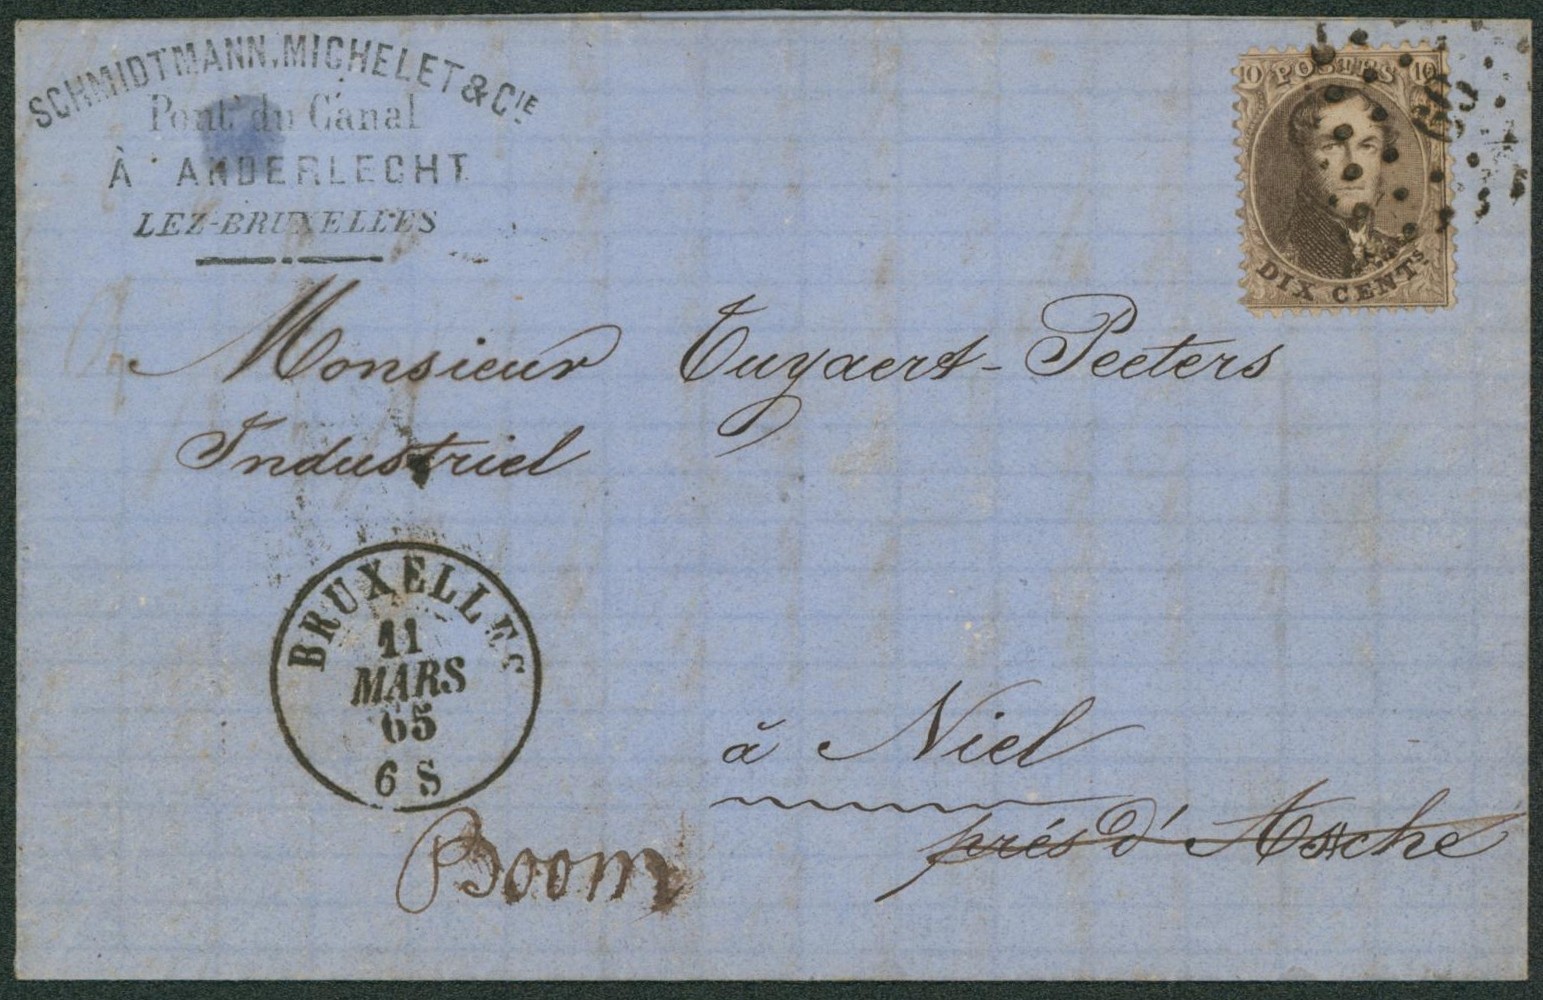 SCHMIDTMANN, MICHELET & CIE
Pont du Canal
À ANDERLECHT
LEZ-BRUXELLES
10 POSTES 10
DIX CENTS
Monsieur Tuyaert-Peeters
Industriel
BRUXELLES
11
MARS
65
6 S
à Niel
près d'Assche
Boom